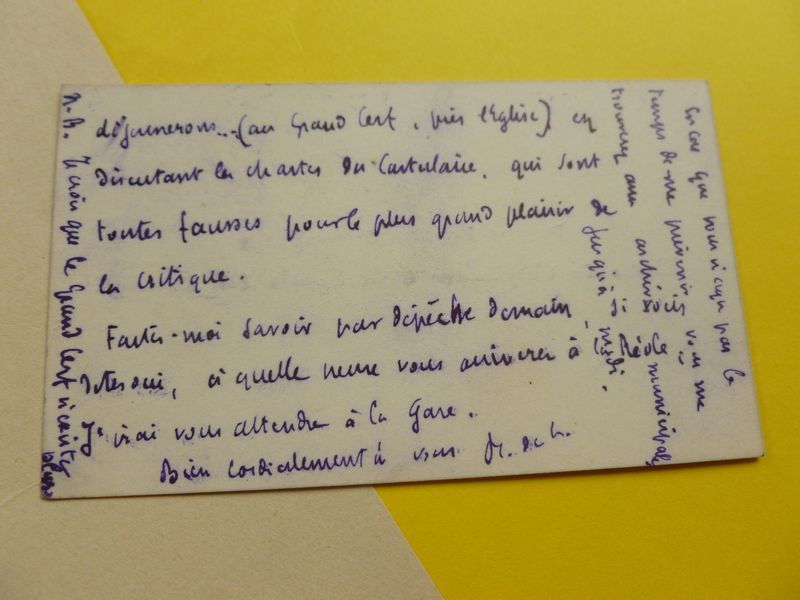 déjeunerons... (au Grand Cerf, près l'Eglise) en
discutant les chartes du Cartulaire, qui sont
toutes fausses pour le plus grand plaisir de
la critique.
Faites-moi savoir par dépêche demain, si
dites oui, à quelle heure vous arriverez à La Réole
J'irai vous attendre à la Gare.
Bien cordialement à vous
En cas que vous n'ayez pas le
temps de me prévenir vous me
trouverez aux archives municipales
jusqu'à midi.
N.-B. Je crois que le Grand Cerf n'existe
plus